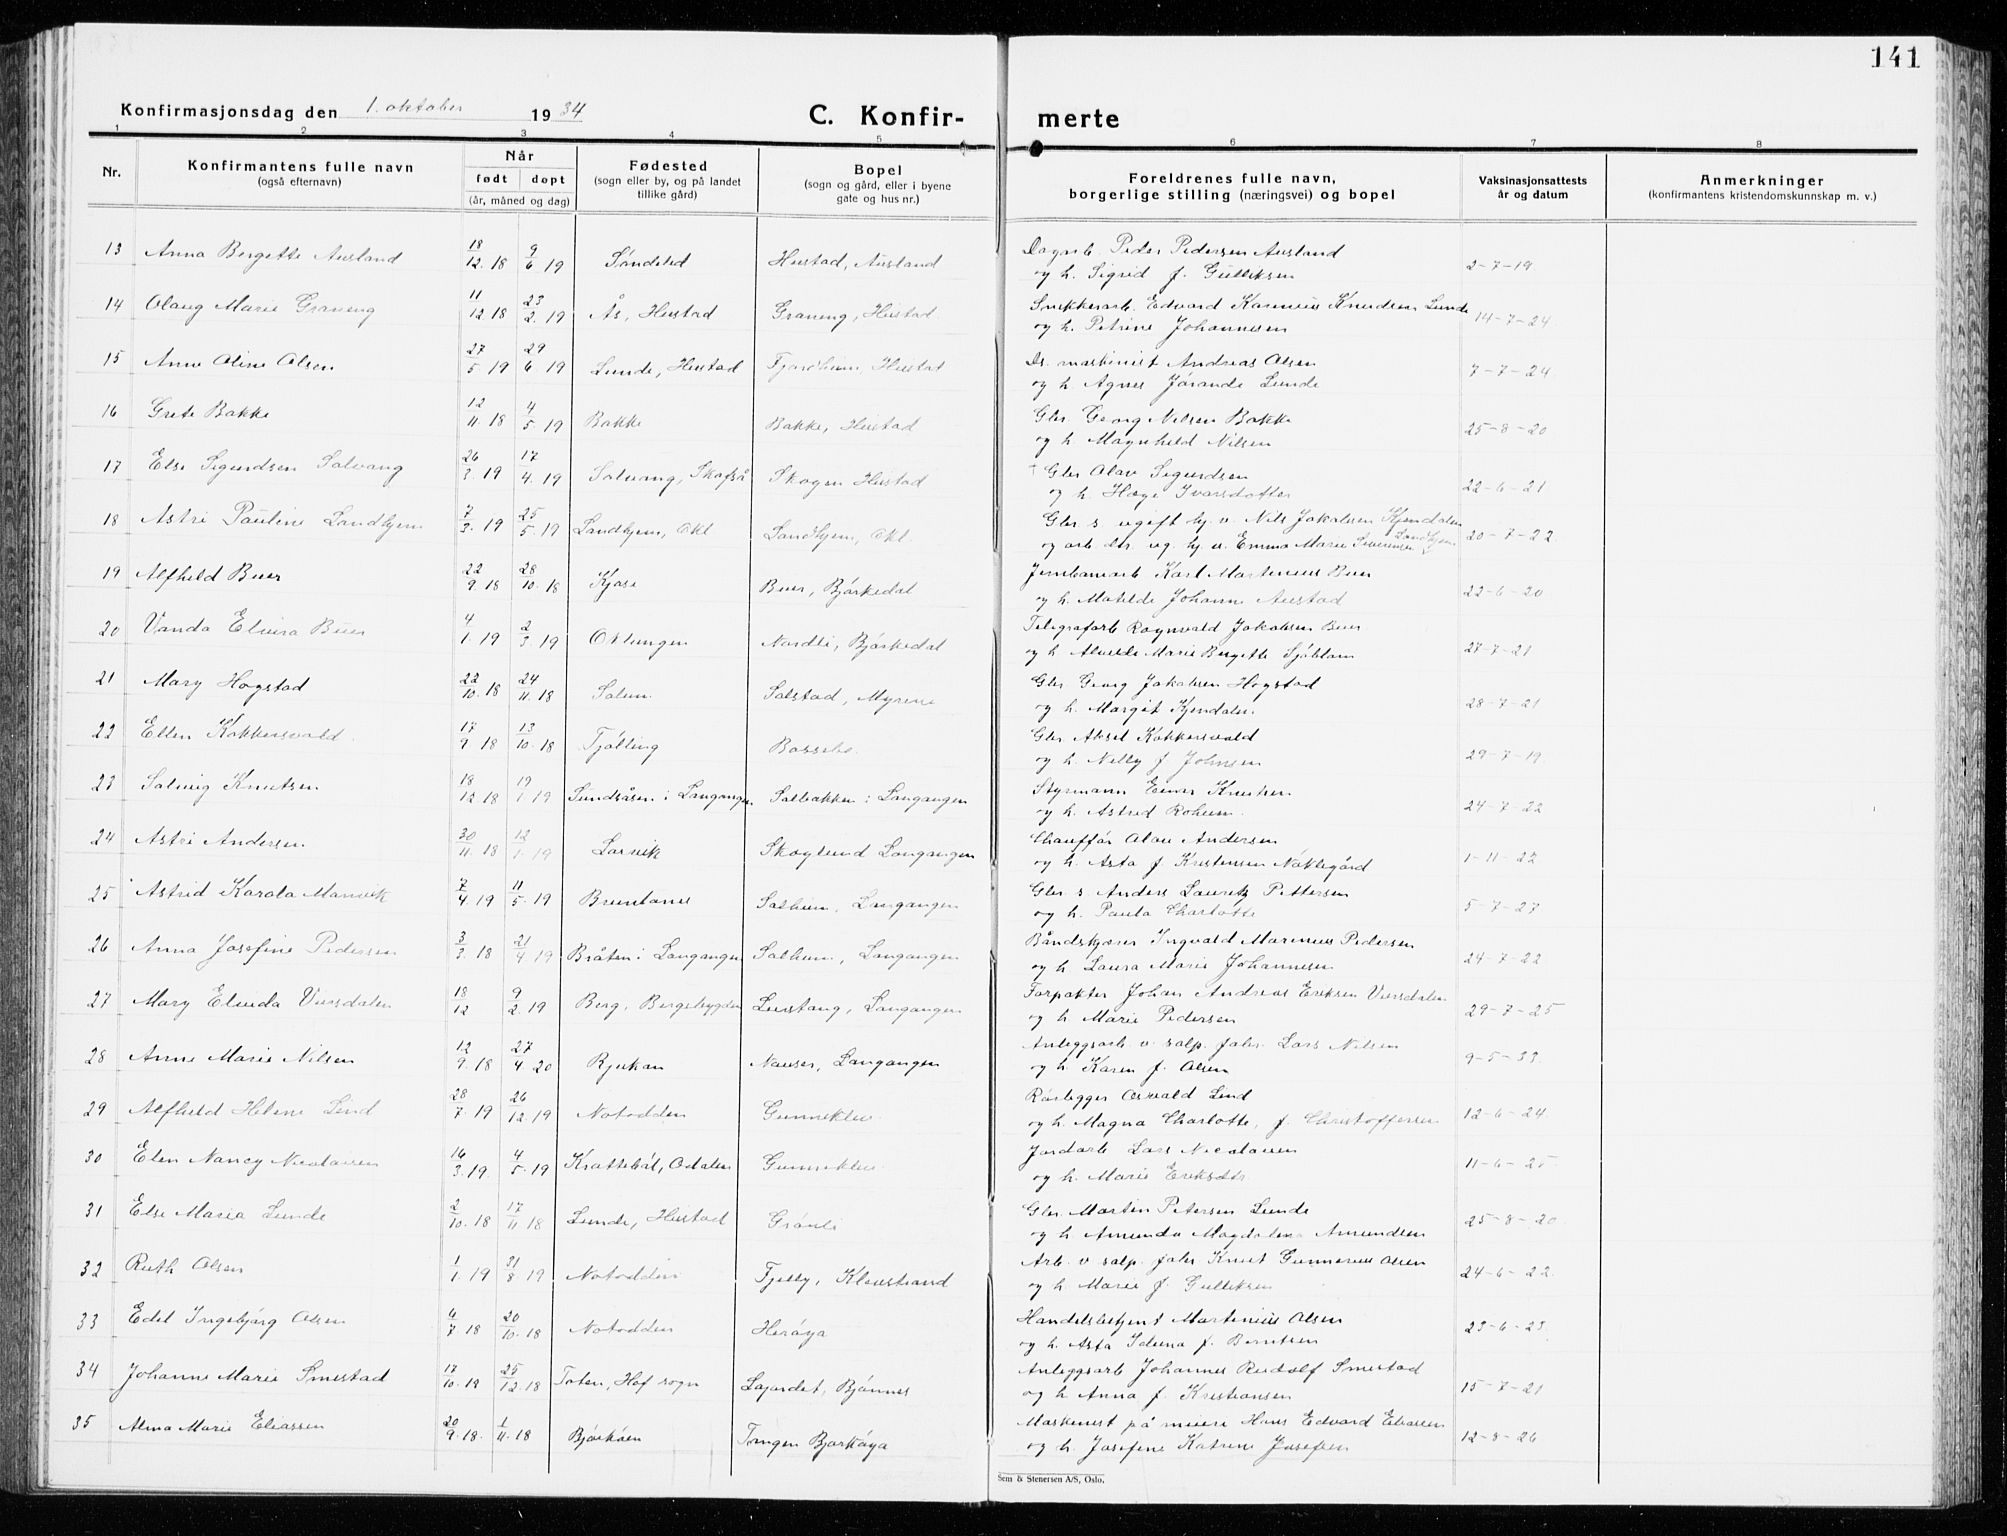 141
Konfirmasjonsdag den 1. oktober 1934 C. Konfir- merte
1 2 3 4 5 6 7 8
Nr. Konfirmantens fulle navn (også efternavn) Når født døpt (år, måned og dag) Fødested (sogn eller by, og på landet tillike gård) Bopel (sogn og gård, eller i byene gate og hus nr.) Foreldrenes fulle navn, borgerlige stilling (næringsvei) og bopel Vaksinasjonsattests år og datum Anmerkninger (konfirmantens kristendomskunnskap m. v.)
13 Anna Bergette Ausland 18/12.18 9/6 19 Søndeled Heistad, Ausland Dagarb. Peder Pedersen Ausland
og h. Sigrid f. Gulliksen 2-7-19
14 Olaug Marie Graneng 11/12 18 23/2. 19 Ås, Heistad Graneng, Heistad. Snikkerarb. Edvard Karenius Knudsen Lunde
og h. Petrine Johannesen 14-7-24.
15 Anne Oline Olsen 27/5 19 29/6 19 Lunde, Heistad Fjordheim, Heistad Ds. maskinist Andreas Olsen
og h Agnes Jørande Lunde 7-7-24
16 Grete Bakke 12/11. 18 4/5. 19 Bakke Bakke, Heistad Gbr. Georg Nilsen Bakke
og h. Magnhild Nilsen 25-8-20
17 Else Sigurdsen Solvang 26/3. 19 17/4. 19 Solvang, Skafså Skogen Heistad † Gbr Olav Sigurdsen
og h. Hæge Ivarsdotter 22-6-21
18 Astri Pauline Sandhjem 7/3. 19 25/5. 19 Sandhjem, Okl Sandhjem, Okl. Gbr. s. ugift hj. v. Nils Jakobsen Kjendalen
og arb. dtr. ug. hj. v. Emma Marie Severinsen Sandhjem 20-7-22
19 Alfhild Buer 22/9. 18 28/10. 18 Kjose Buer, Bjørkedal Jernbanearb Karl Martinius Buer
og h. Matilde Johanne Austad 22-6-20
20 Vanda Elvira Buer 4/1 19 2/3 19 Oklungen Nordli, Bjørkedal Telegrafarb Ragnvald Jakobsen Buer
og h Alvilde Marie Bergette Sjøblom 27-7-21
21 Mary Hogstad 22/10. 18 24/11. 18 Solum Solstad, Myrene Gbr. Georg Jakobsen Hogstad
og h. Margit Kjendalen 28-7-21
22 Ellen Kokkersvold 17/9 18 13/10. 18 Tjølling Gbr Aksel Kokkersvold
og h. Nelly f Johnsen 29-7-19.
23 Solveig Knutsen 18/12 18 19/1 19 Sundsåsen i Langangen Solbakken i Langangen Styrmann Einar Knutsen
og h. Astrid Roheim. 24-7-22
24 Astri Andersen 30/11. 18 12/1. 19 Larvik Skoglund Langangen Chauffør Olav Andersen
og h. Asta f. Kristensen Nøklegård 1-11-22
25 Astrid Karola Manvik 7/4 19 11/5. 19 Bruntanes Solheim, Langangen Gbr. s Anders Lauritz Pettersen
og h. Paula Charlotte 5-7-27
26 Anna Josefine Pedersen 3/3. 18 21/4 19 Bråten i Langangen Solheim, Langangen Båndskjærer Ingvald Marinius Pedersen
og h Laura Marie Johannesen 24-7-22
27 Mary Elvida Vinsdalen 18/12 9/2. 19 Berg, Bergebygden Lunstang, Langangen Forpakter Johan Andreas Eriksen Vinsdalen
og h Marie Pedersen 29-7-25
28 Anne Marie Nilsen 12/9. 18 27/4 20 Rjukan Nauser, Langangen Anleggsarb. v. salp. fabr. Lars Nilsen
og h. Karen f. Olsen 9-5-33
29 Alfhild Helene Lind 28/7. 19 26/12. 19 Notodden Gunneklev Rørlegger Osvald Lind
og h. Magna Charlotte, f. Christoffersen 12-6-24
30 Elen Nancy Nicolaisen 16/3. 19. 4/5. 19 Krattebøl, Odalen Gunneklev Jordarb Lars Nicolaisen
og h. Marie Eriksdtr. 11-6-25
31 Else Maria Lunde 2/10. 18 17/11. 18 Lunde, Heistad Grønli Gbr. Martin Petersen Lunde
og h Amunda Magdalena Amundsen 25-8-20
32 Ruth Olsen 1/1 19 31/8 19 Notodden Fjelly, Klevstrand Arb. v salp. fabr Knut Gunnerius Olsen
og h. Marie f. Gulliksen 24-6-22
33 Edel Ingebjørg Olsen 6/7 18 20/10. 18 Notodden Herøya Handelsbetjent Martinius Olsen
og h. Asta f. Berntsen 23-6-23
34 Johanne Marie Smestad 17/10. 19 25/12. 18 Toten, Hof sogn Løjordet, Bjønnes Anleggsarb Johannes Rudolf Smestad
og h Anna f. Kristiansen 15-7-21
35 Alma Marie Eliassen 20/9. 18. 1/11. 18 Bjørkøen Tangen Bjørkøya Maskinist på meieri Hans Edvard Eliassen
og h. Josefine Katrine Josefsen 12-8-26
Sem & Stenersen A/S, Oslo.